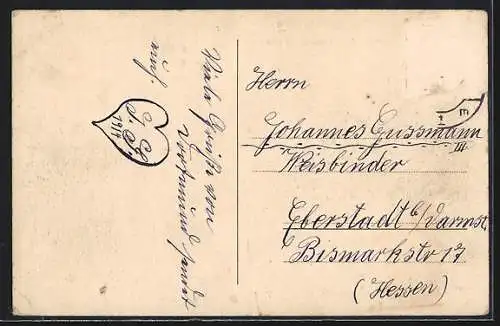 Viele Grüße von
Dortmund sendet
auch
J. G.
1917
Herrn
Johannes Gussmann
III.
Weisbinder
Eberstadt b/Darmst.
Bismarkstr 17
(Hessen)